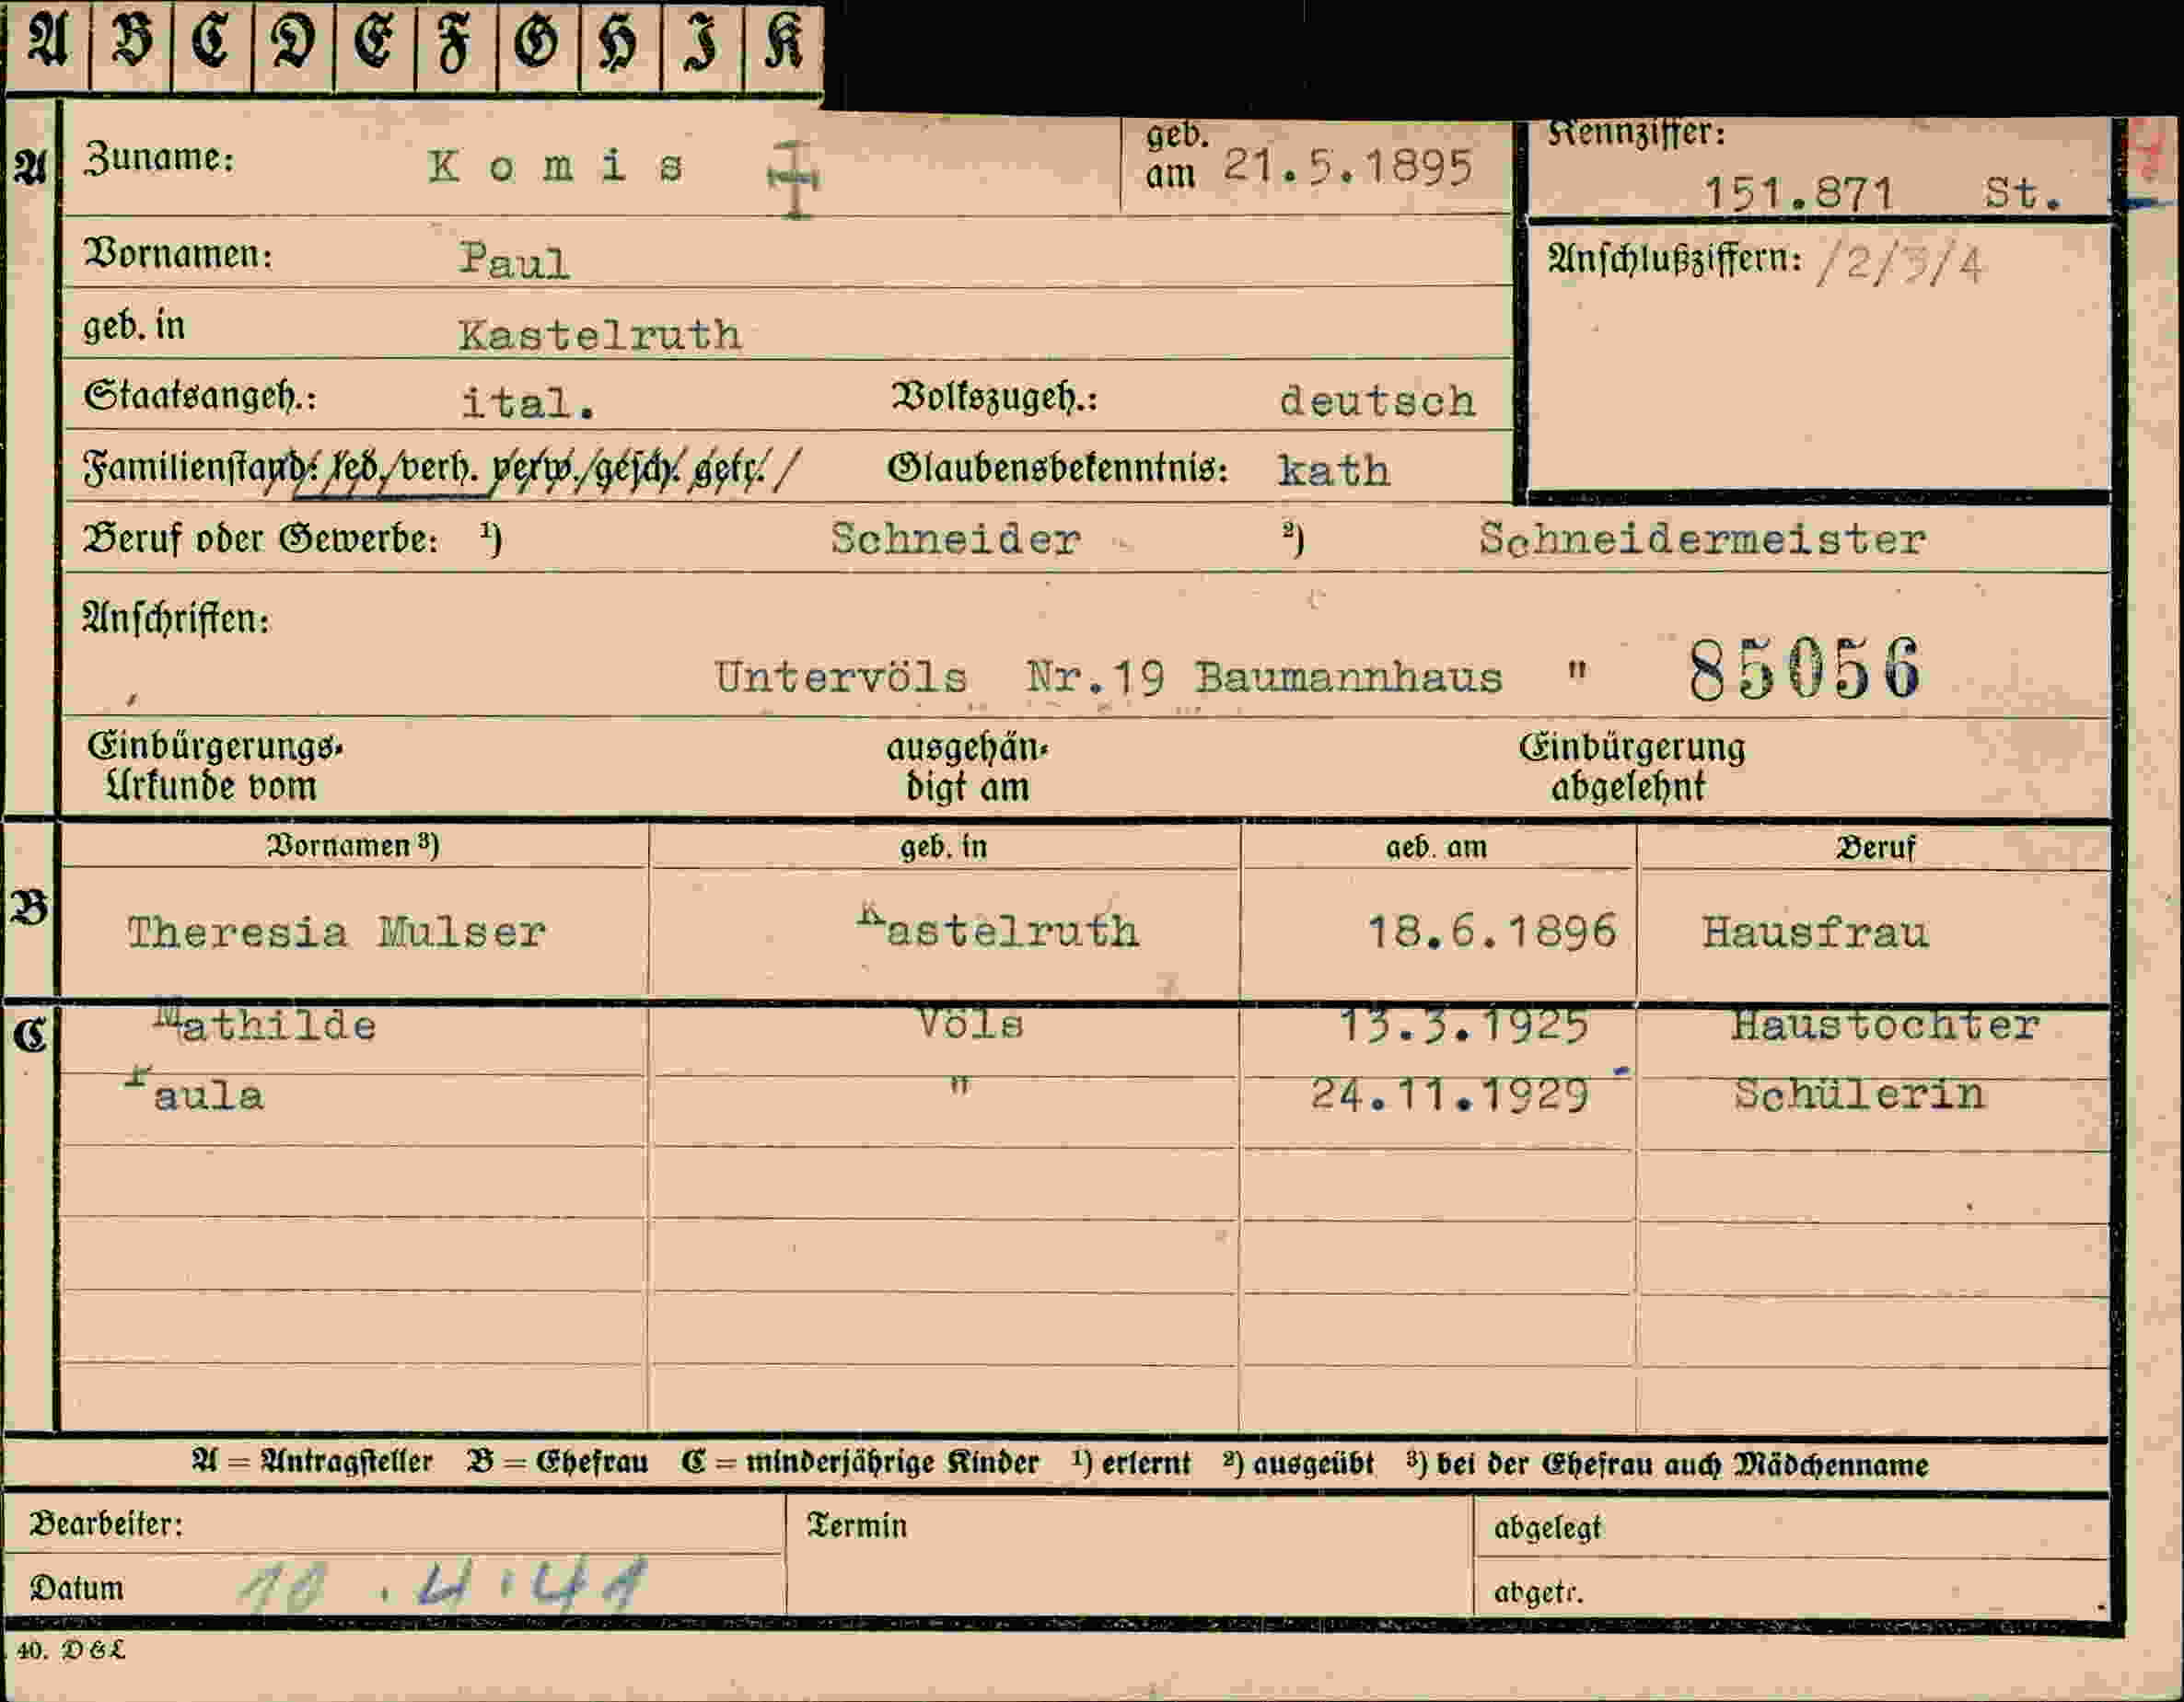 A B C D E F G H I K
A Zuname: Komis geb. am 21.5.1895 Kennziffer: 151.871 St.
Vornamen: Paul Anschlußziffern: /2/3/4
geb. in Kastelruth
Staatsangeh.: ital. Volkszugeh.: deutsch
Familienstand: led./verh. verw./gesch. getr./ Glaubensbekenntnis: kath
Beruf oder Gewerbe: 1) Schneider 2) Schneidermeister
Anschriften:
Untervöls Nr.19 Baumannhaus " 85056
Einbürgerungs- ausgehän- Einbürgerung
Urkunde vom digt am abgelehnt
Vornamen 3) geb. in geb. am Beruf
B Theresia Mulser Kastelruth 18.6.1896 Hausfrau
C Mathilde Völs 13.3.1925 Haustochter
Paula " 24.11.1929 Schülerin
A = Antragsteller B = Ehefrau C = minderjährige Kinder 1) erlernt 2) ausgeübt 3) bei der Ehefrau auch Mädchenname
Bearbeiter: Termin abgelegt
Datum 10.4.41 abgetr.
40. DGL